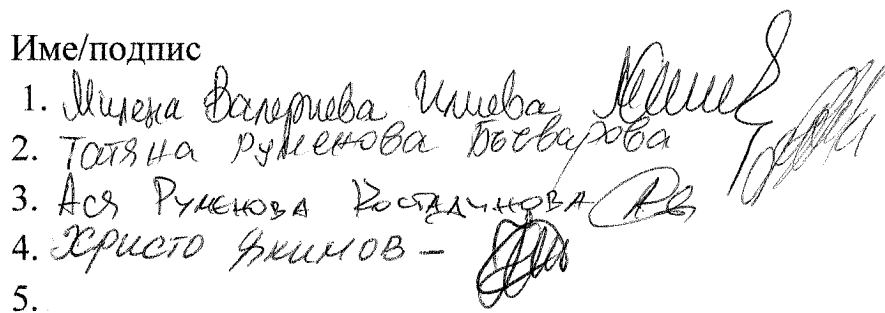 Име/подпис
1. Милена Валериева Илиева
2. Татяна Руменова Бъчварова
3. Ася Руменова Костадинова
4. Христо Якимов –
5.